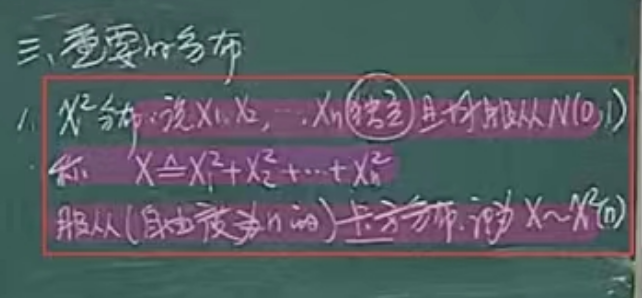 三、重要的分布
1. χ²分布.设X₁,X₂,…,Xₙ独立且均服从N(0,1)
称 X≜X₁²+X₂²+…+Xₙ²
服从(自由度为n的)卡方分布.记为 X~χ²(n)